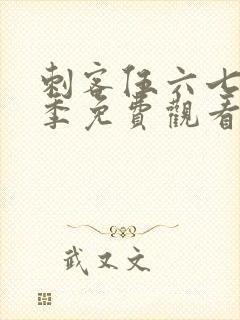 刺客伍六七
季免費觀看
武又文